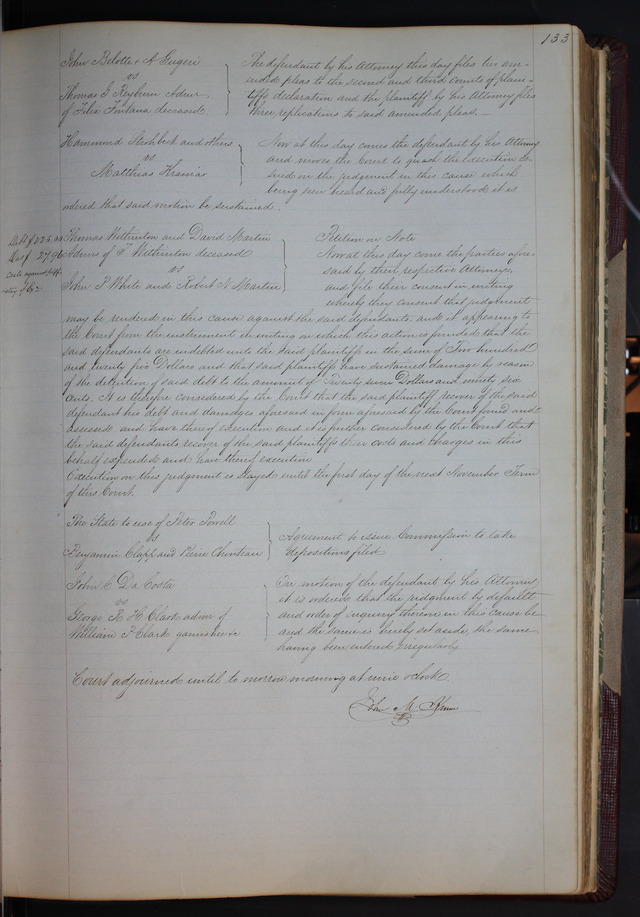 133
John Belotte & A Eugere
vs
Thomas G Reyburn Admr
of Felix Fontana deceased
The defendant by his Attorney this day files his am-
ended pleas to the second and third Counts of plain-
tiffs declaration and the plaintiff by his Attorney files
three replications to said amended pleas.
Hammond Strohbeck and others
vs
Matthias
Now at this day comes the defendant by his Attorney
and moves the Court to quash the Execution is-
sued on the judgment in this cause which
being seen heard and fully understood it is
ordered that said motion be sustained.
Debt $225.00
Dam $ 27.96
Costs against
Thomas Withinton and David Martin
Admrs of F Withinton deceased
vs
John P White and Robert N Martin
Petition on Note
Now at this day come the parties afore-
said by their respective Attorneys,
and file their consent in writing
whereby they consent that judgment
may be rendered in this cause against the said defendants, and it appearing to
the Court from the instrument in writing on which this action is founded that the
said defendants are indebted unto the said plaintiffs in the sum of Two hundred
and twenty five Dollars and that said plaintiffs have sustained damage by reason
of the detention of said debt to the amount of Twenty seven Dollars and ninety six
cents. It is therefore considered by the Court that the said plaintiff recover of the said
defendant his debt and damages aforesaid in form aforesaid by the Court found and
assessed and have thereof execution and it is further considered by the Court that
the said defendants recover of the said plaintiffs their costs and charges in this
behalf expended and have thereof execution
Execution on this judgment is stayed until the first day of the next November Term
of this Court.
The State to use of Peter Powell
vs
Benjamin Clapp and Pierre Chouteau
Agreement to issue Commission to take
depositions filed
John C Da Costa
vs
George R H Clark admr of
William P Clark garnishee
On motion of the defendant by his Attorney
it is ordered that the judgment by default
and order of inquiry thereon in this cause be
and the same is hereby set aside, the same
having been entered irregularly
Court adjourned until to morrow morning at nine oclock.
John M.